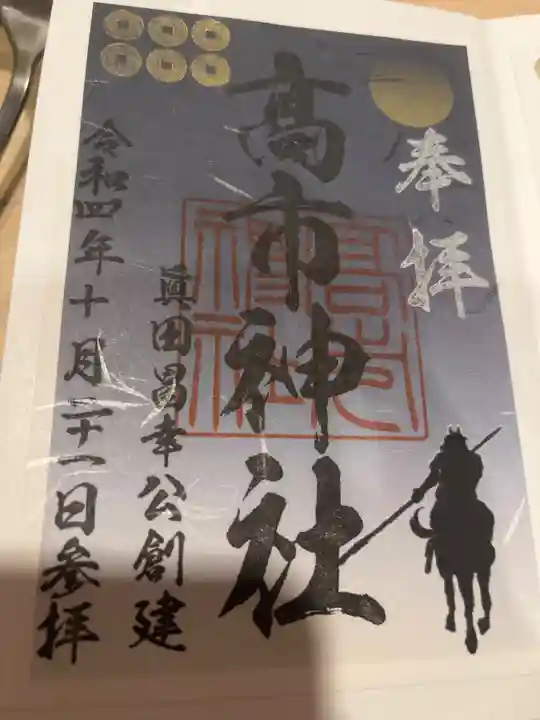 奉拝
髙市神社
眞田昌幸公創建
令和四年十月二十一日参拝